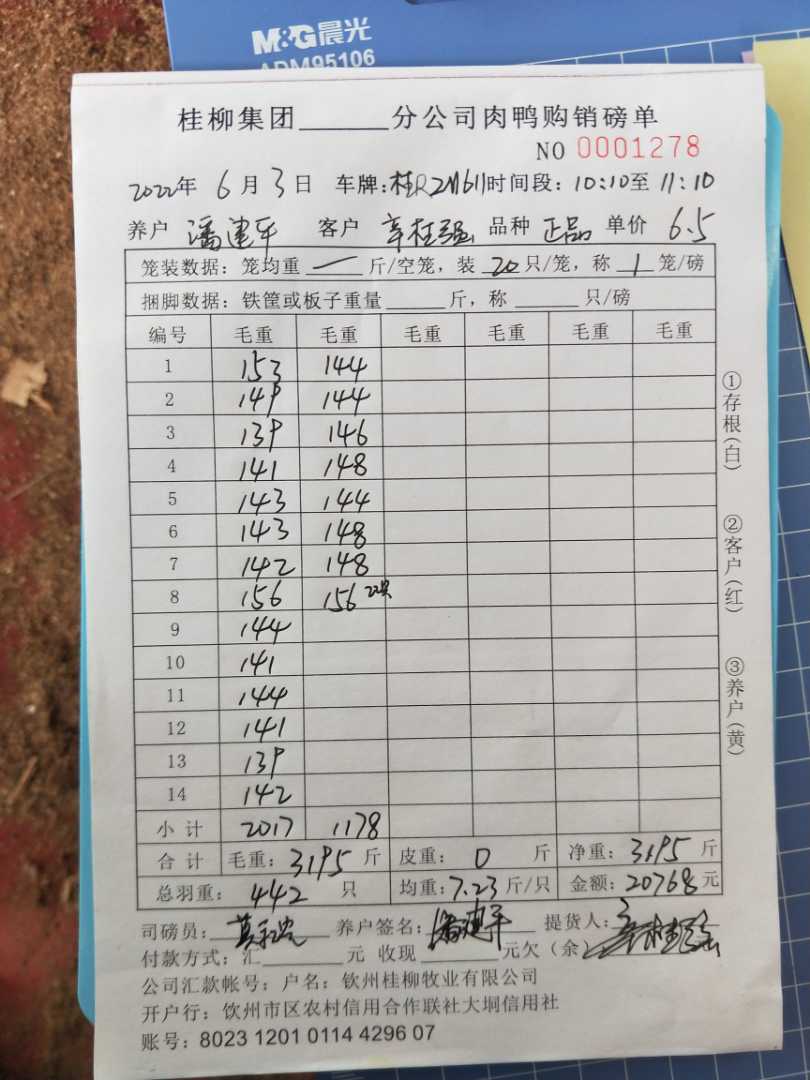 M&G晨光
ADM95106
桂柳集团______分公司肉鸭购销磅单
NO 0001278
2022年 6月 3日 车牌:桂R2N611时间段:10:10至11:10
养户 潘建平 客户 辛桂强 品种 正品 单价 6.5
笼装数据:笼均重 一 斤/空笼,装 20 只/笼,称 1 笼/磅
捆脚数据:铁筐或板子重量______斤,称______只/磅
编号 毛重 毛重 毛重 毛重 毛重 毛重
1 153 144
2 149 144
3 139 146
4 141 148
5 143 144
6 143 148
7 142 148
8 156 156 22只
9 144
10 141
11 144
12 141
13 139
14 142
小计 2017 1178
合计 毛重:3195斤 皮重:0斤 净重:3195斤
总羽重:442只 均重:7.23斤/只 金额:20768元
司磅员: 养户签名:潘建平 提货人:辛桂强
付款方式:汇______元 收现______元欠(余
公司汇款帐号:户名:钦州桂柳牧业有限公司
开户行:钦州市区农村信用合作联社大垌信用社
账号:8023 1201 0114 4296 07
①存根(白)
②客户(红)
③养户(黄)